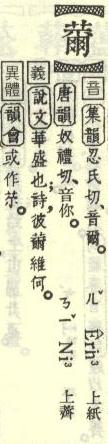 薾
音 集韻忍氏切、音爾。 ㄦˇ Êrh³ 上紙
唐韻奴禮切、音你。 ㄋㄧˇ Ni³ 上薺
義 說文華盛也;詩,彼薾維何。
異體 韻會或作苶。